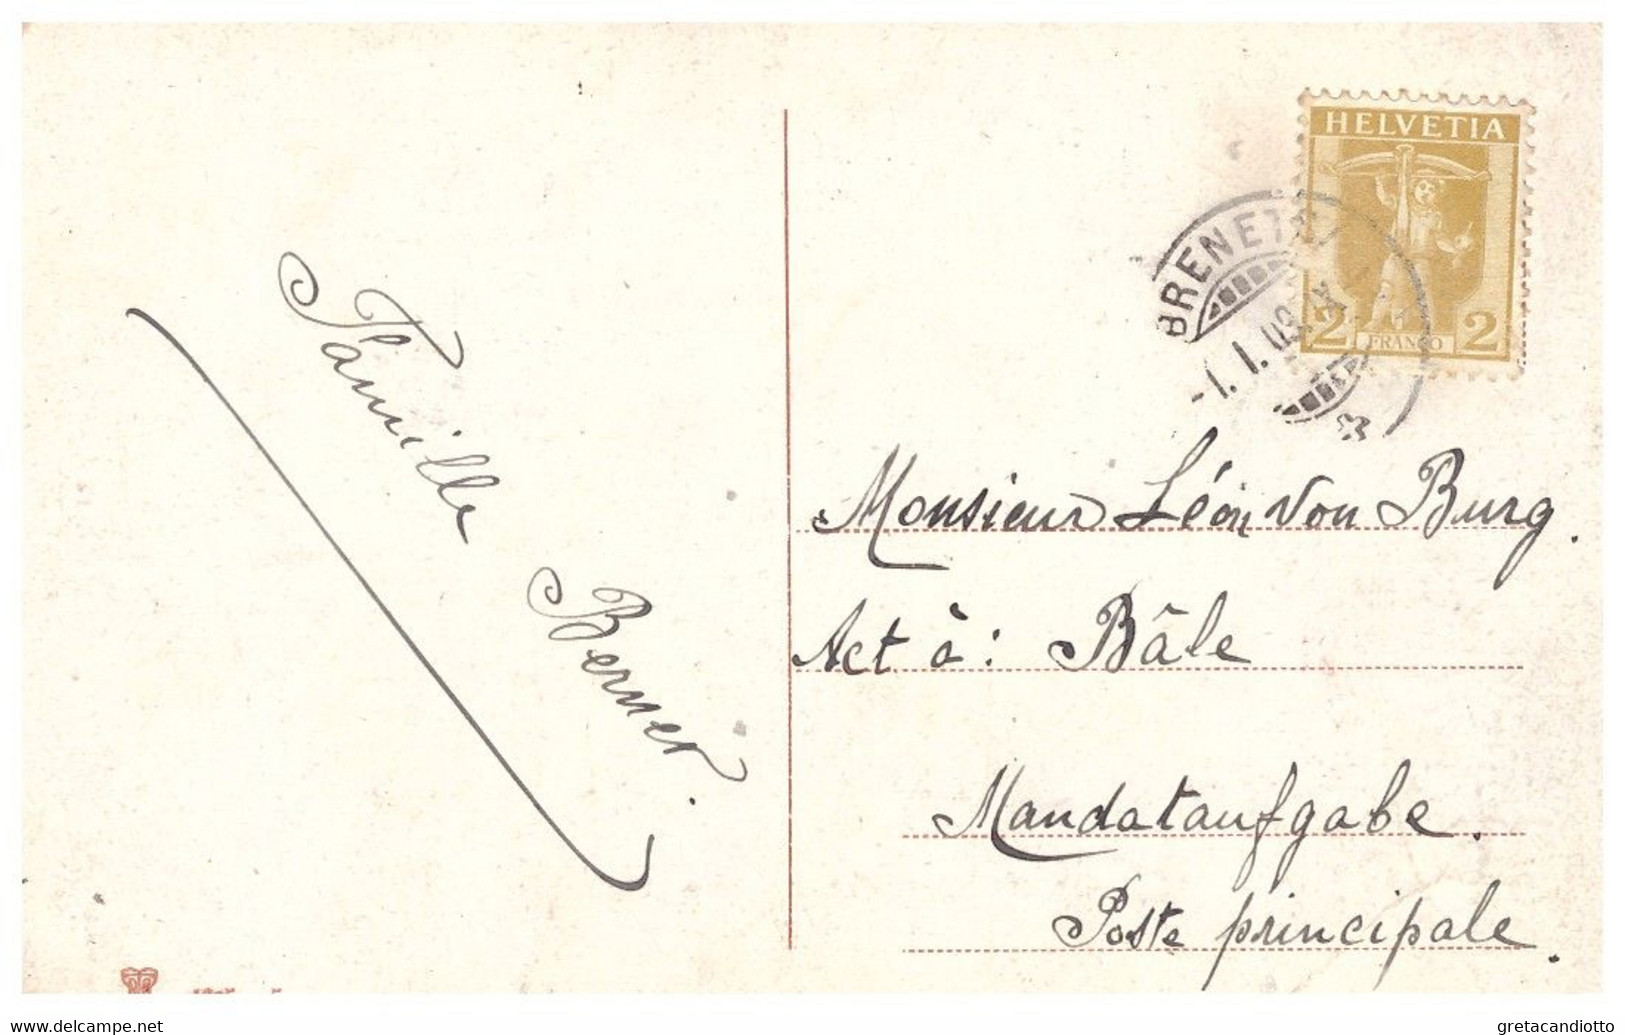 Famille
Bernier.
HELVETIA
2 FRANCO 2
BRENETS
-1. I. 09. X
Monsieur Léon Von Burg.
Act à : Bâle
Mandataufgabe.
Poste principale.
www.delcampe.net
gretacandiotto